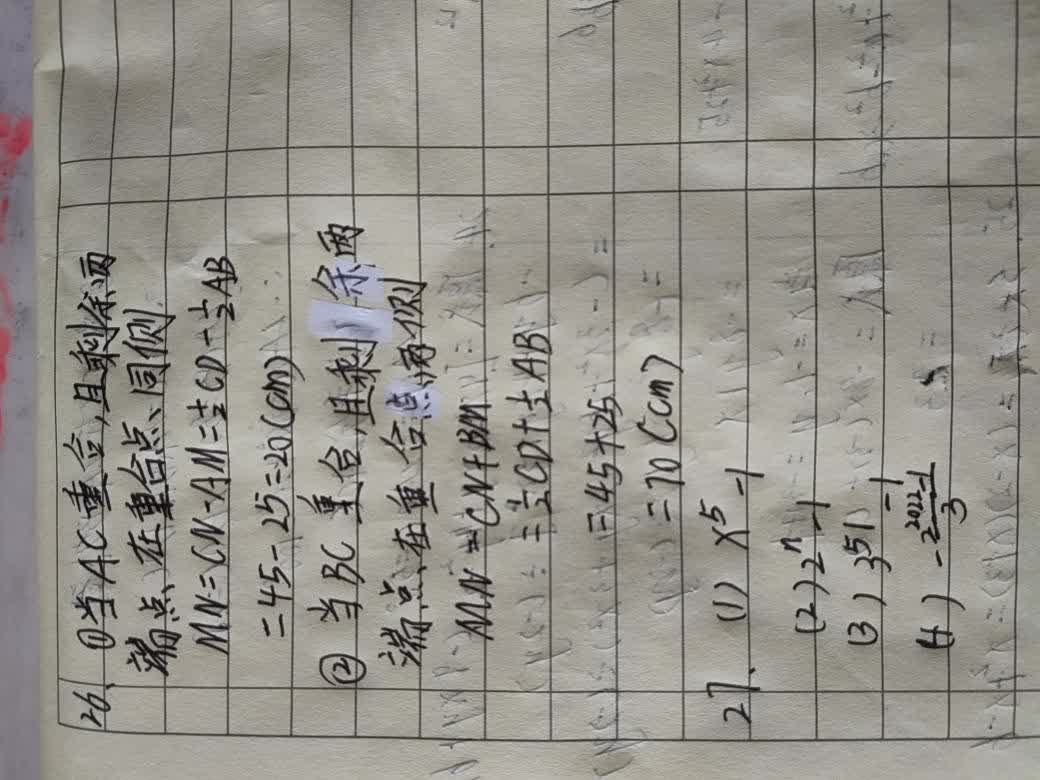 26、①当AC重合,且剩余两
端点、在重合点、同侧
MN=CN-AM=½CD-½AB
=45-25=20(cm)
② 当BC重合,且剩余两
端点、在重合点两侧
MN=CN+BM
=½CD+½AB
=45+25
=70(cm)
27. (1) x⁵-1
(2) 2ⁿ-1
(3) 3⁵¹-1
(4) -(2²⁰²²-1)/3